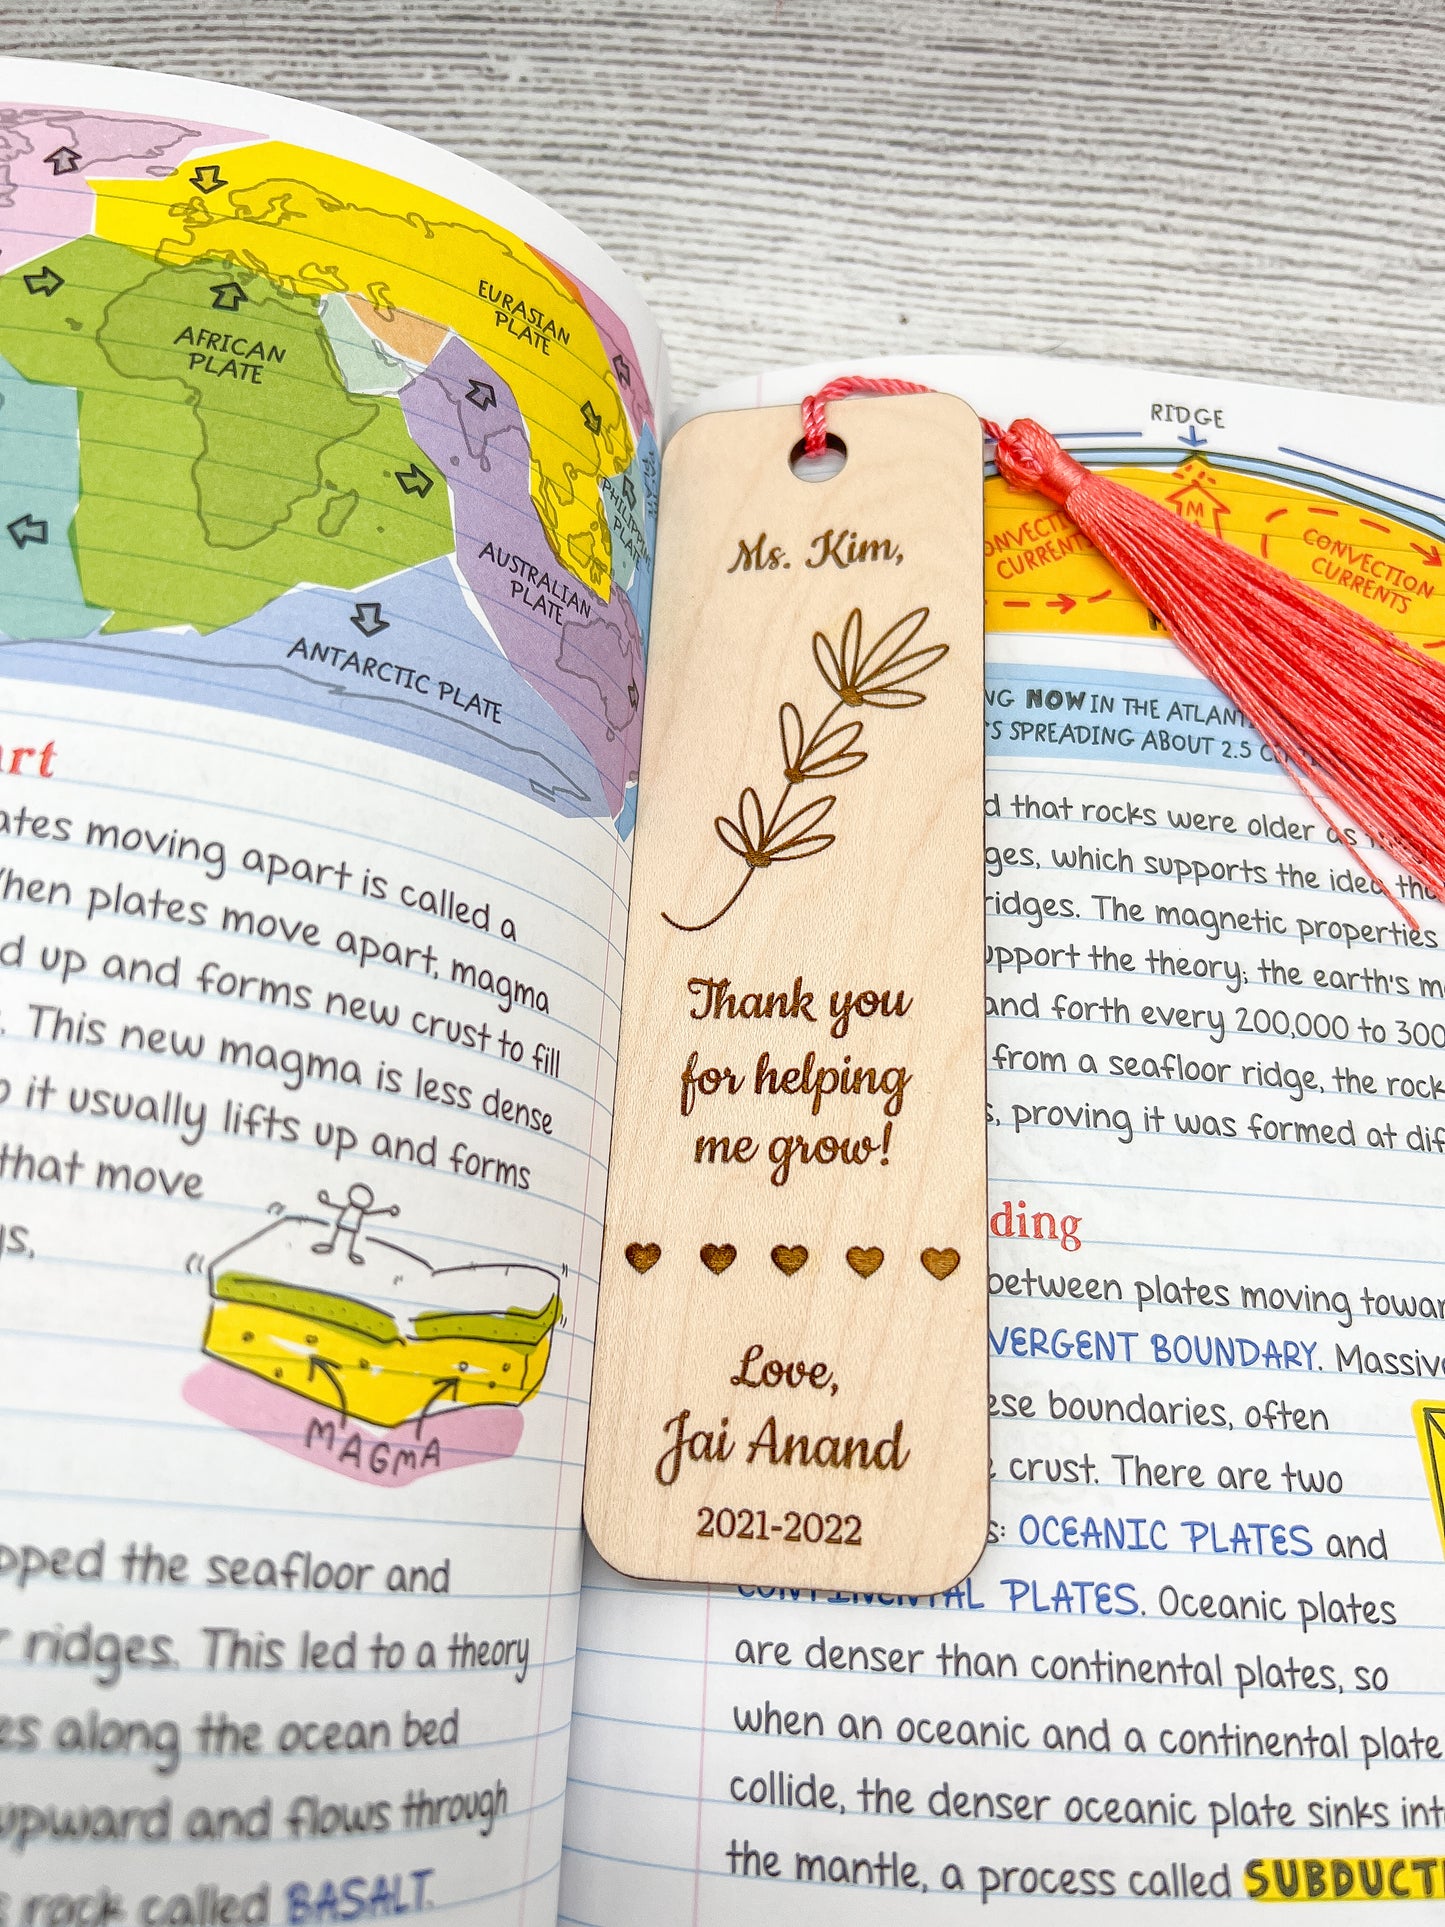 AFRICAN
PLATE
EURASIAN
PLATE
PHILIPPINE
PLATE
AUSTRALIAN
PLATE
ANTARCTIC PLATE
art
moving apart is called a
When plates move apart, magma
up and forms new crust to fill
This new magma is less dense
it usually lifts up and forms
that move
MAGMA
the seafloor and
ridges. This led to a theory
along the ocean bed
upward and flows through
rock called BASALT.
Ms. Kim,
Thank you
for helping
me grow!
Love,
Jai Anand
2021-2022
RIDGE
CURRENTS
CONVECTION
CURRENTS
NOW IN THE ATLANT
SPREADING ABOUT 2.5
that rocks were older as
which supports the idea
ridges. The magnetic properties
support the theory; the earth's
and forth every 200,000 to 300
from a seafloor ridge, the rock
proving it was formed at
ding
between plates moving
VERGENT BOUNDARY. Massive
boundaries, often
crust. There are two
OCEANIC PLATES and
CONTINENTAL PLATES. Oceanic plates
are denser than continental plates, so
when an oceanic and a continental plate
collide, the denser oceanic plate sinks
the mantle, a process called SUBDUCTI